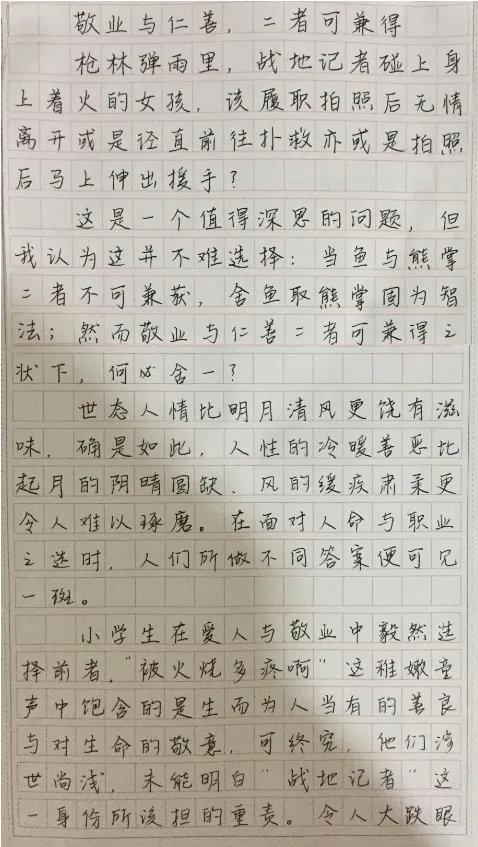 敬业与仁善，二者可兼得
枪林弹雨里，战地记者碰上身
上着火的女孩，该履职拍照后无情
离开或是径直前往扑救亦或是拍照
后马上伸出援手？
这是一个值得深思的问题，但
我认为这并不难选择：当鱼与熊掌
二者不可兼获，舍鱼取熊掌固为智
法；然而敬业与仁善二者可兼得之
状下，何必舍一？
世态人情比明月清风更饶有滋
味，确是如此，人性的冷暖善恶比
起月的阴晴圆缺、风的缓疾肃柔更
令人难以琢磨。在面对人命与职业
之选时，人们所做不同答案便可见
一斑。
小学生在爱人与敬业中毅然选
择前者，"被火烧多疼啊"这稚嫩童
声中饱含的是生而为人当有的善良
与对生命的敬意，可终究，他们涉
世尚浅，未能明白"战地记者"这
一身份所该担的重责。令人大跌眼